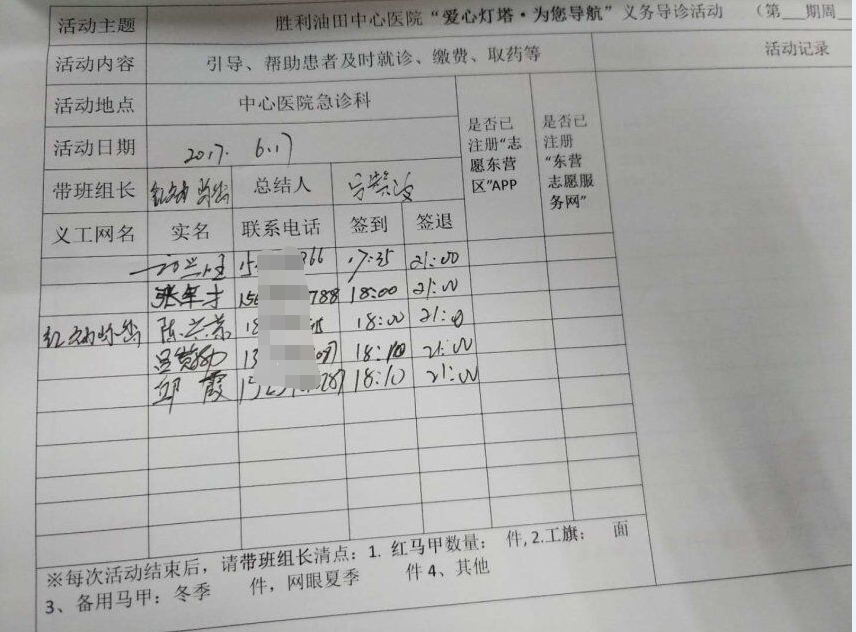 活动主题 胜利油田中心医院“爱心灯塔·为您导航”义务导诊活动 （第___期周_
活动内容 引导、帮助患者及时就诊、缴费、取药等 活动记录
活动地点 中心医院急诊科
是否已注册“志愿东营区”APP
是否已注册“东营志愿服务网”
活动日期 2017. 6.17
带班组长 总结人
义工网名 实名 联系电话 签到 签退
15 366 17:35 21:00
张军才 156 788 18:00 21:00
陈兰芬 18 18:00 21:0
13 18:10 21:00
邱霞 18:10 21:00
※每次活动结束后，请带班组长清点：1. 红马甲数量： 件, 2.工旗： 面
3、备用马甲：冬季 件，网眼夏季 件 4、其他